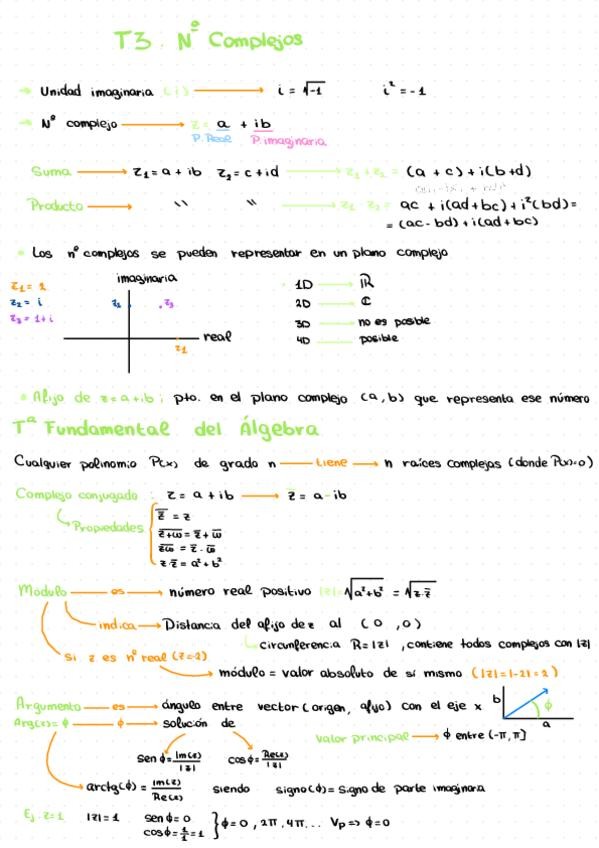 T3. Nº Complejos
→ Unidad imaginaria (i) → i = √-1 i² = -1
→ Nº complejo → z = a + ib
P. Real P. imaginaria
Suma → z₁ = a + ib z₂ = c + id → z₁ + z₂ = (a + c) + i(b + d)
Producto → " " → z₁ · z₂ = ac + i(ad + bc) + i²(bd) =
= (ac - bd) + i(ad + bc)
Los nº complejos se pueden representar en un plano complejo
z₁ = 1
z₂ = i
z₃ = 1 + i
imaginaria
z₂ z₃
real
z₁
1D → ℝ
2D → ℂ
3D → no es posible
4D → posible
Afijo de z = a + ib : pto. en el plano complejo (a, b) que representa ese número
Tª Fundamental del Álgebra
Cualquier polinomio P(x) de grado n — tiene → n raíces complejas (donde P(x)=0)
Complejo conjugado : z = a + ib → z̅ = a - ib
Propiedades
z̿ = z
z̅+̅ω̅ = z̅ + ω̅
z̅ω̅ = z̅ · ω̅
z · z̅ = a² + b²
Módulo — es → número real positivo |z| = √a² + b² = √z·z̅
indica → Distancia del afijo de z al (0,0)
circunferencia R = |z|, contiene todos complejos con |z|
Si z es nº real (z=-2)
módulo = valor absoluto de sí mismo (|z| = |-2| = 2)
Argumento — es → ángulo entre vector (origen, afijo) con el eje x
b
ϕ
a
Arg(z) = ϕ — ϕ → solución de
valor principal → ϕ entre (-π, π]
sen ϕ = Im(z)/|z| cos ϕ = Re(z)/|z|
arctg(ϕ) = Im(z)/Re(z) siendo signo(ϕ) = signo de parte imaginaria
Ej. z=1 |z| = 1 sen ϕ = 0
cos ϕ = 1/1 = 1 } ϕ = 0, 2π, 4π... Vp => ϕ = 0